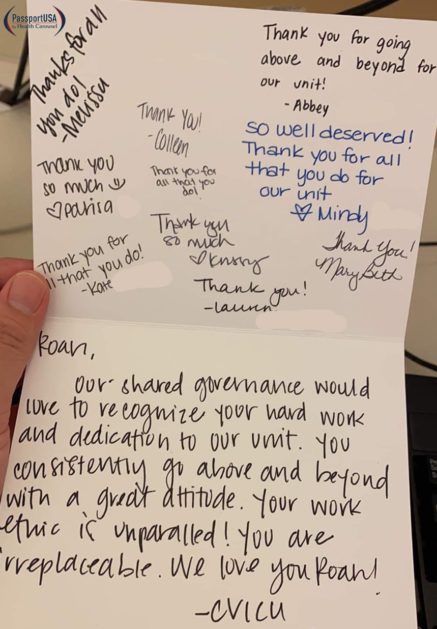 PassportUSA
by Health Carousel
Thanks for all
you do!
-Melissa
Thank you for going
above and beyond for
our unit!
-Abbey
Thank you!
-Colleen
So well deserved!
Thank you for all
that you do for
our unit
Mindy
Thank you
so much
Parisa
Thank you for
all that you
do!
Thank you
so much
Thank You!
Mary Beth
Thank you for
all that you do!
-Kate
Thank you!
-Lauren
Roan,
Our shared governance would
love to recognize your hard work
and dedication to our unit. You
consistently go above and beyond
with a great attitude. Your work
ethic is unparalled! You are
irreplaceable. We love you Roan!
-CVICU